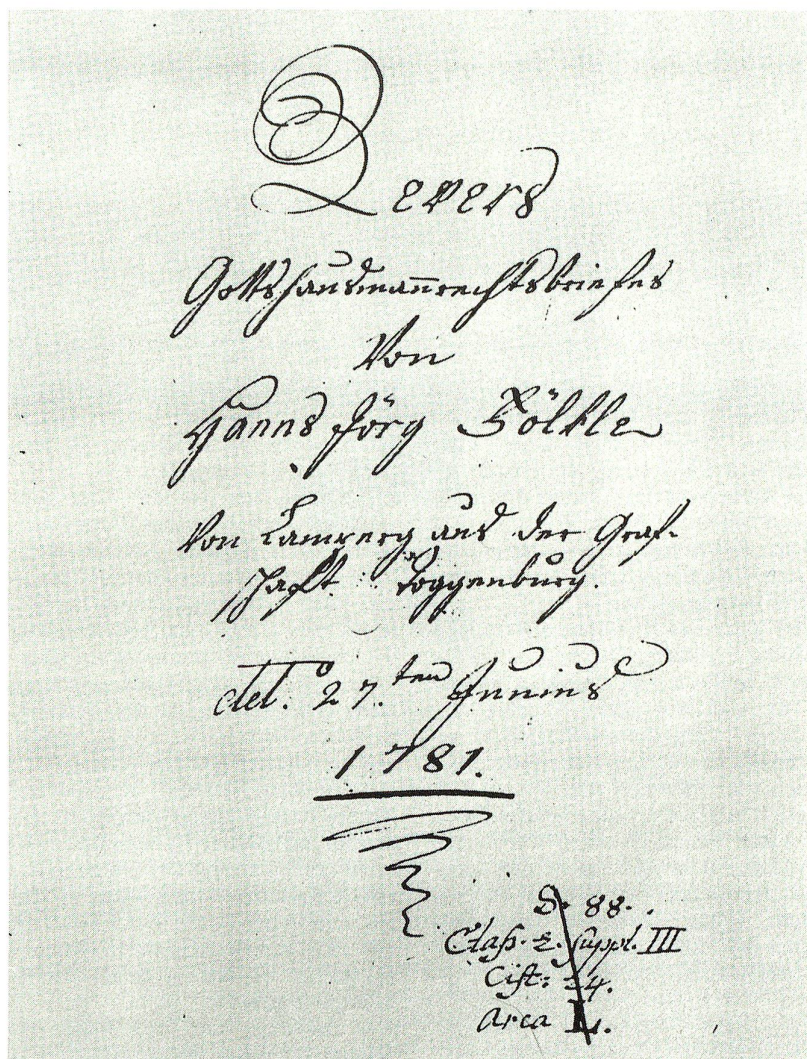 Revers
Gottshausman̄rechtsbriefes
Von
Hanns Jörg Bölkle
Von Lamperg aus der Graf-
schafft Toggenburg.
dct.° 27.ten Junius
1781.
S. 88.
Class. 2. Suppl. III
Cist: 24.
Arca L.